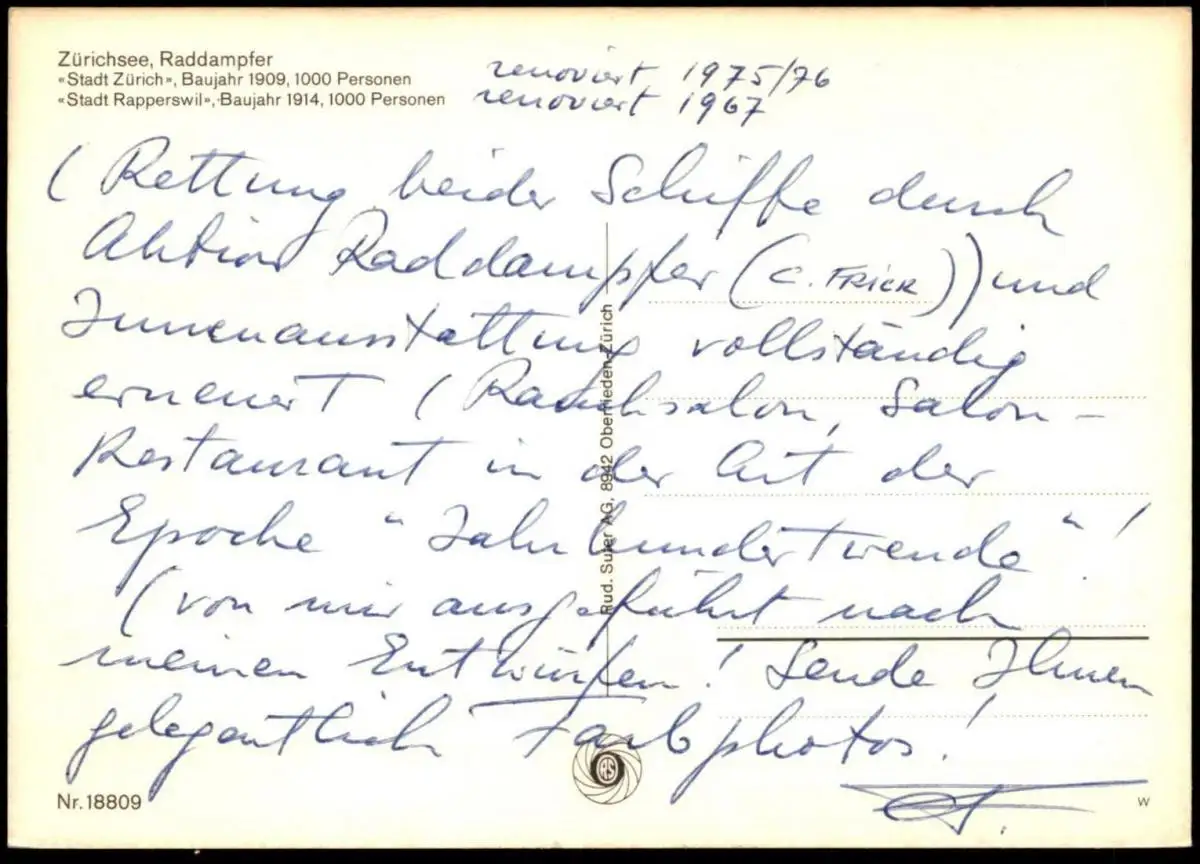 Zürichsee, Raddampfer
«Stadt Zürich», Baujahr 1909, 1000 Personen renoviert 1975/76
«Stadt Rapperswil», Baujahr 1914, 1000 Personen renoviert 1967
( Rettung beider Schiffe durch
Aktion Raddampfer (C. FRICK)) und
Innenausstattung vollständig
erneuert ( Rauchsalon, Salon-
Restaurant in der Art der
Epoche "Jahrhundertwende"!
(von mir ausgeführt nach
meinen Entwürfen! Sende Ihnen
gelegentlich Farbphotos!
Rud. Suter AG, 8942 Oberrieden-Zürich
RS
Nr. 18809
W